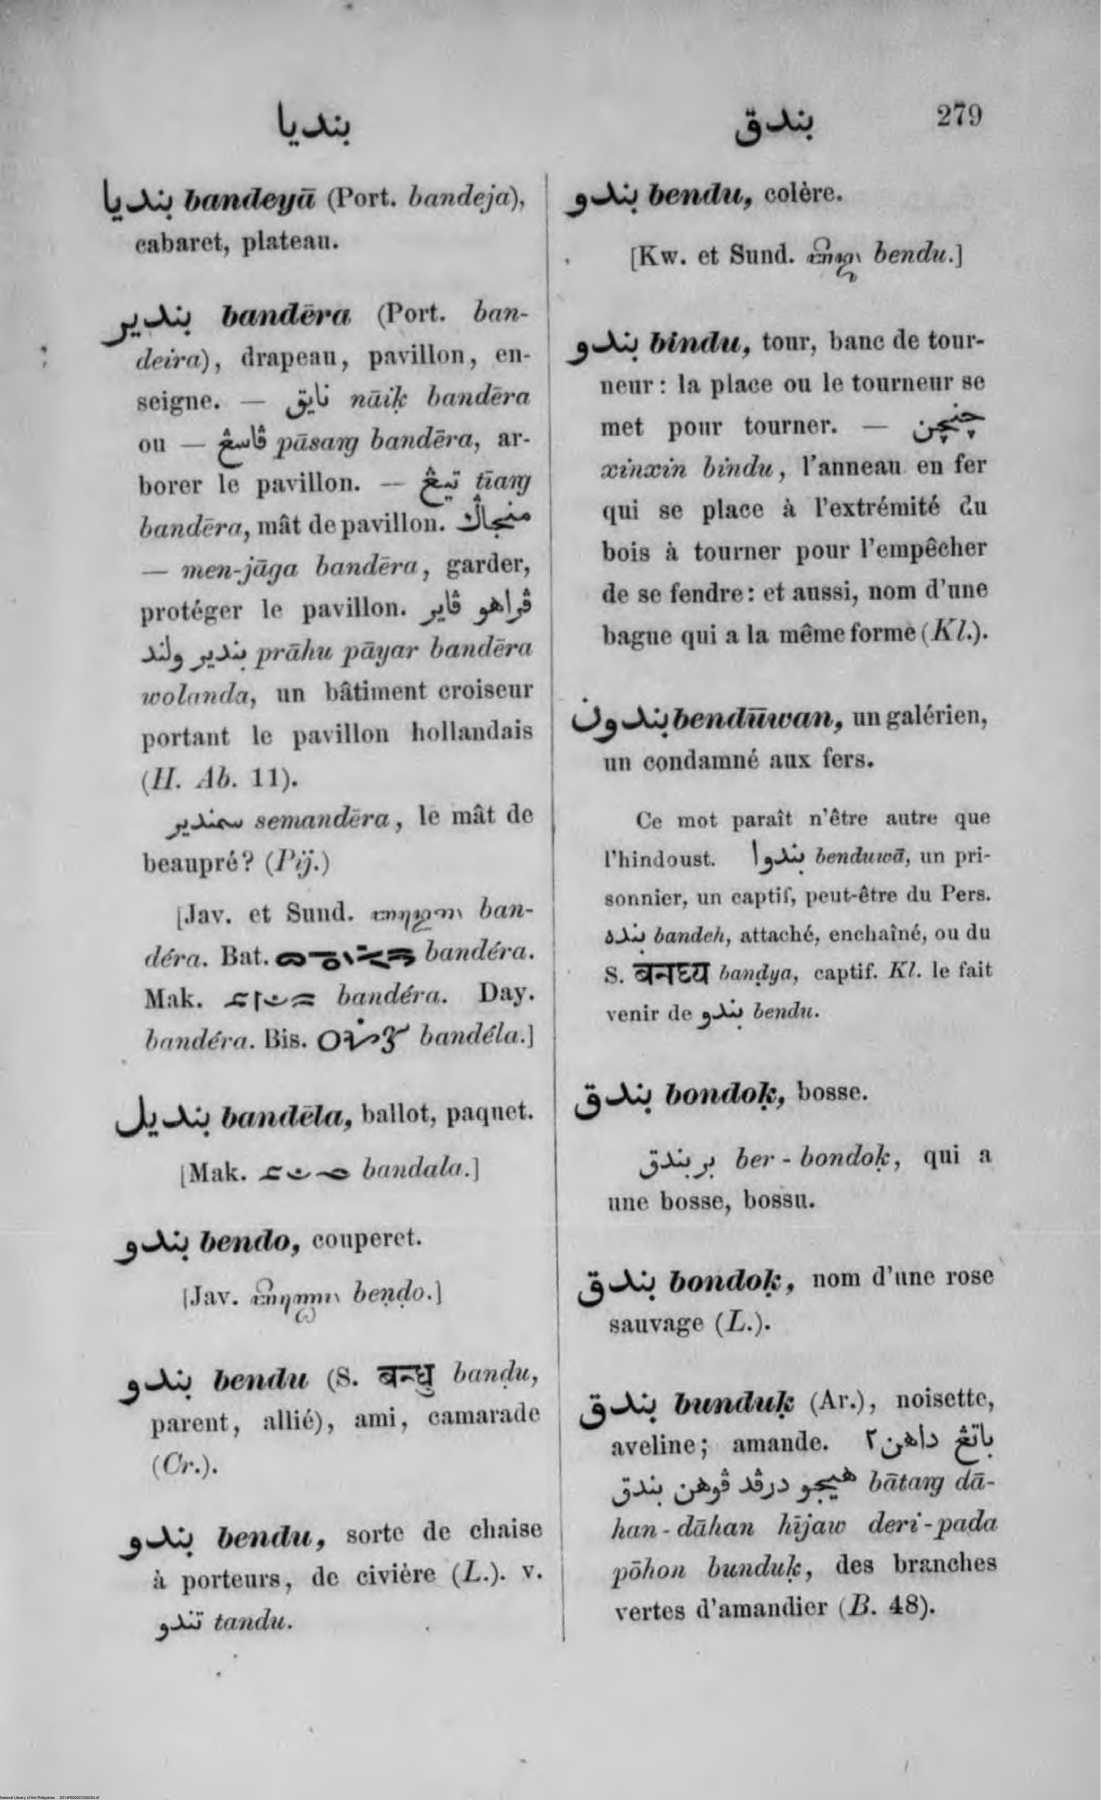 بنديا
بندق
279
بنديا bandeyā (Port. bandeja),
cabaret, plateau.
بندير bandēra (Port. ban-
deira), drapeau, pavillon, en-
seigne. — نايق nāiḳ bandēra
ou — ڤاسڠ pāsaŋ bandēra, ar-
borer le pavillon. — تيڠ tīaŋ
bandēra, mât de pavillon. منجاݢ
— men-jāga bandēra, garder,
protéger le pavillon. ڤراهو ڤاير
بندير ولند prāhu pāyar bandēra
wolanda, un bâtiment croiseur
portant le pavillon hollandais
(H. Ab. 11).
سمندير semandēra, le mât de
beaupré? (Pij.)
[Jav. et Sund. ban-
déra. Bat. bandéra.
Mak. bandéra. Day.
bandéra. Bis. bandéla.]
بنديل bandēla, ballot, paquet.
[Mak. bandala.]
بندو bendo, couperet.
[Jav. beṇḍo.]
بندو bendu (S. बन्धु banḍu,
parent, allié), ami, camarade
(Cr.).
بندو bendu, sorte de chaise
à porteurs, de civière (L.). v.
تندو tandu.
بندو bendu, colère.
[Kw. et Sund. bendu.]
بندو bindu, tour, banc de tour-
neur: la place ou le tourneur se
met pour tourner. — چنچن
xinxin bindu, l'anneau en fer
qui se place à l'extrémité du
bois à tourner pour l'empêcher
de se fendre: et aussi, nom d'une
bague qui a la même forme (Kl.).
بندون bendūwan, un galérien,
un condamné aux fers.
Ce mot paraît n'être autre que
l'hindoust. بندوا benduwā, un pri-
sonnier, un captif, peut-être du Pers.
بنده bandeh, attaché, enchaîné, ou du
S. banḍya, captif. Kl. le fait
venir de بندو bendu.
بندق bondoḳ, bosse.
بربندق ber-bondoḳ, qui a
une bosse, bossu.
بندق bondoḳ, nom d'une rose
sauvage (L.).
بندق bunduḳ (Ar.), noisette,
aveline; amande. باتڠ داهن٢
هيجو درڤد ڤوهن بندق bātaŋ dā-
han-dāhan hījaw deri-pada
pōhon bunduḳ, des branches
vertes d'amandier (B. 48).